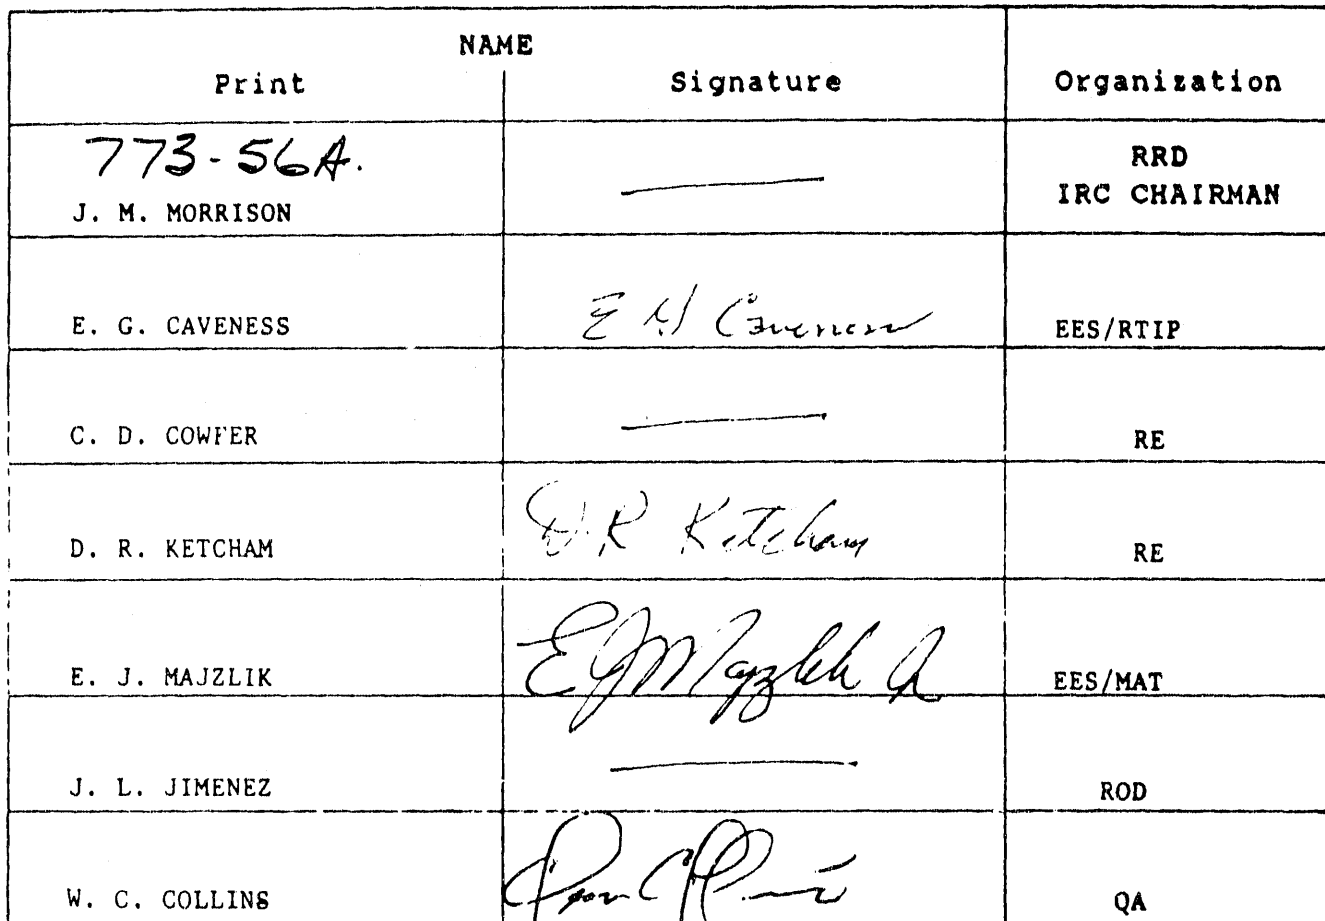 NAME
Print Signature Organization
773-56A. RRD
J. M. MORRISON IRC CHAIRMAN
E. G. CAVENESS E G Caveness EES/RTIP
C. D. COWFER RE
D. R. KETCHAM D. R Ketcham RE
E. J. MAJZLIK E J Majzlik Jr EES/MAT
J. L. JIMENEZ ROD
W. C. COLLINS QA